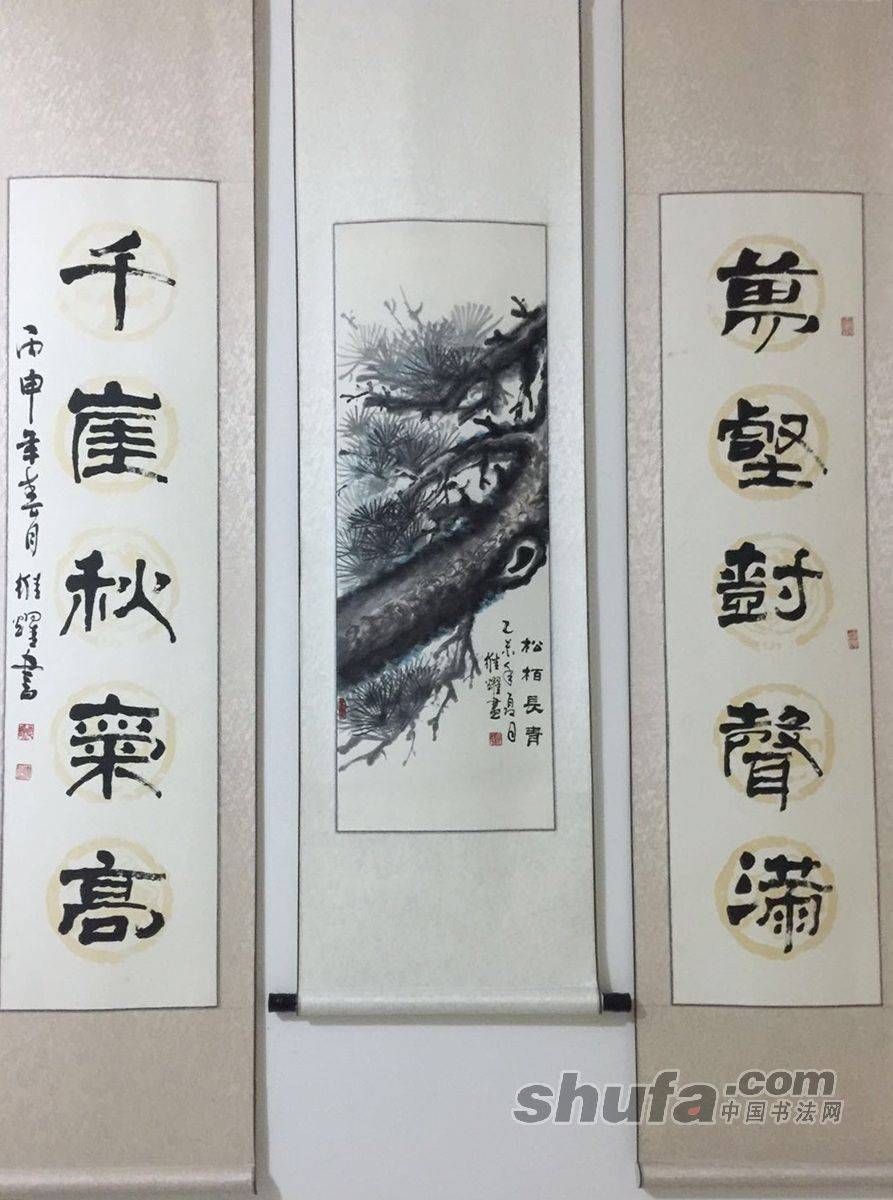 萬壑樹聲滿
千崖秋氣高
丙申年春月維耀書
松柏長青
乙未年夏月
維耀畫
shufa.com
中国书法网